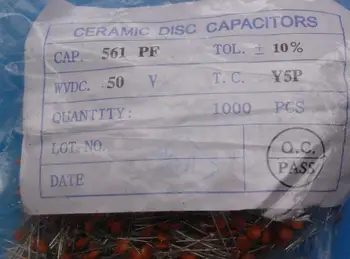 CERAMIC DISC CAPACITORS
CAP. 561 PF TOL. ± 10%
WVDC. 50 V T. C. Y5P
QUANTITY: 1000 PCS
LOT NO.
Q.C.
PASS
DATE